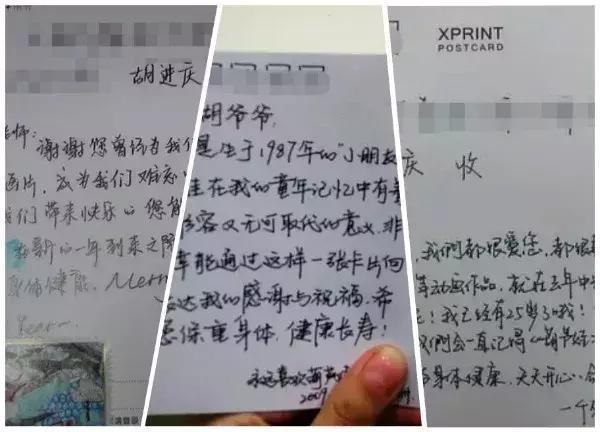 胡进庆
老师:
谢谢您曾经为我们
画片,成为我们难忘
我们带来快乐
在新的一年到来之际
身体健康。Merr
胡爷爷,
是生于1987年的"小朋友
在我的童年记忆中有着
容又无可取代的意义,非
能通过这样一张卡片向
达我的感谢与祝福,希
您保重身体,健康长寿!
永远喜欢葫芦
2009
XPRINT
POSTCARD
庆 收
,我們都很愛您,都很
动画作品,就在去年中
!我已经有25岁了哦!
我們会一直记得
身体健康,天天开心
一个